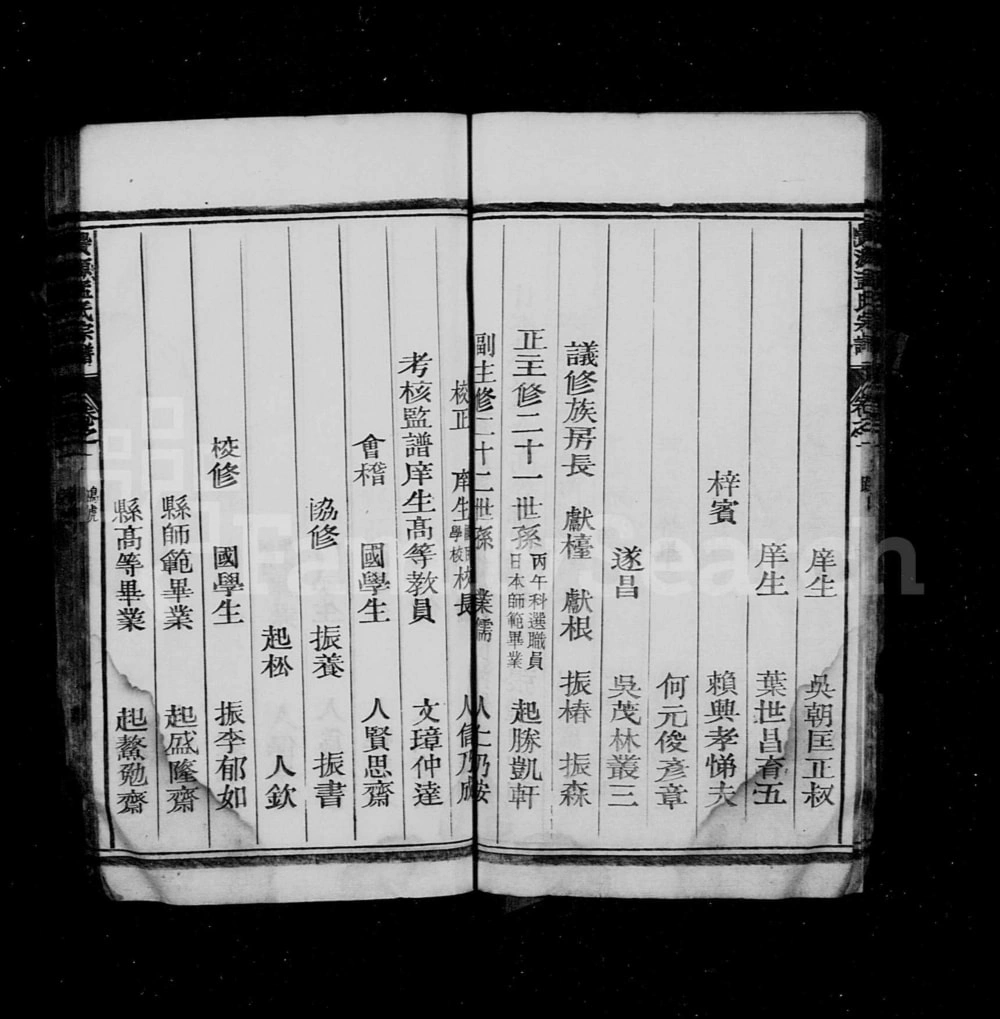 庠生 吳朝匡正叔
庠生 葉世昌育五
梓賓 賴興孝悌夫
何元俊彥章
遂昌 吳茂林叢三
議修族房長 獻檯 獻根 振椿 振森
正主修二十一世孫 丙午科選職員 日本師範畢業 起勝凱軒
副主修二十二世孫 業儒 人仁乃安
校正 庠生 學校校長 人信乃
考核監譜庠生高等教員 文璋仲達
會稽 國學生 人賢思齋
協修 振養 振書
起松 人欽
校修 國學生 振李郁如
縣師範畢業 起盛隆齋
縣高等畢業 起鰲勉齋
源孟氏宗譜 卷之一